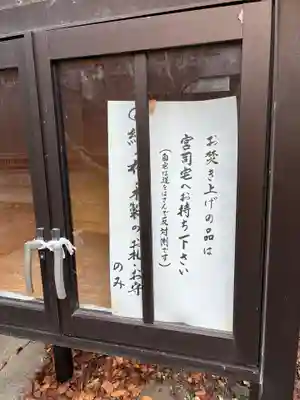 お焚き上げの品は
宮司宅へお持ち下さい
(自宅は道をはさんで反対側です)
紙・布・木製のお札・お守
のみ